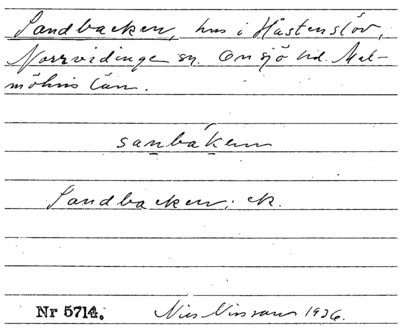 Sandbacken, hus i Håstenslöv,
Norrvidinge sn. Onsjö hd. Mal-
möhus län.
sanbákenn
Sandbacken, ek.
Nr 5714. Nils Nilsson 1926.